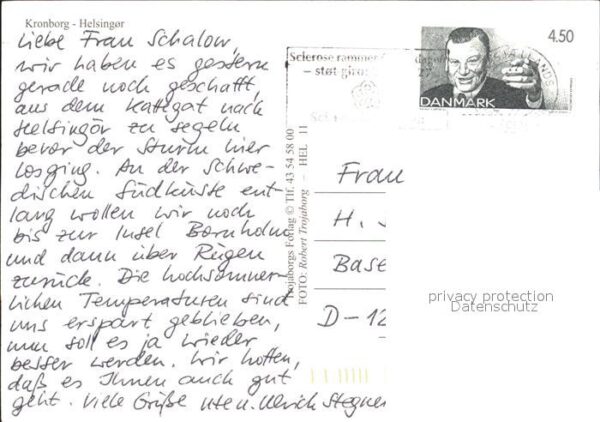 Kronborg - Helsingør
Liebe Frau Schalow,
wir haben es gestern
gerade noch geschafft,
aus dem Kattgat nach
Helsingör zu segeln
bevor der Sturm hier
losging. An der Schwe-
dischen Südküste ent-
lang wollen wir noch
bis zur Insel Bornholm
und dann über Rügen
zurück. Die hochsommer-
lichen Temperaturen sind
uns erspart geblieben,
nun soll es ja wieder
besser werden. Wir hoffen,
daß es Ihnen auch gut
geht. Viele Grüße Ute u. Ulrich Stegner
Trojaborgs Forlag © Tlf. 43 54 58 00
FOTO: Robert Trojaborg – HEL 11
Sclerose rammer
– støt giro
4.50
DANMARK
Frau
H.
Base
D-12
privacy protection
Datenschutz